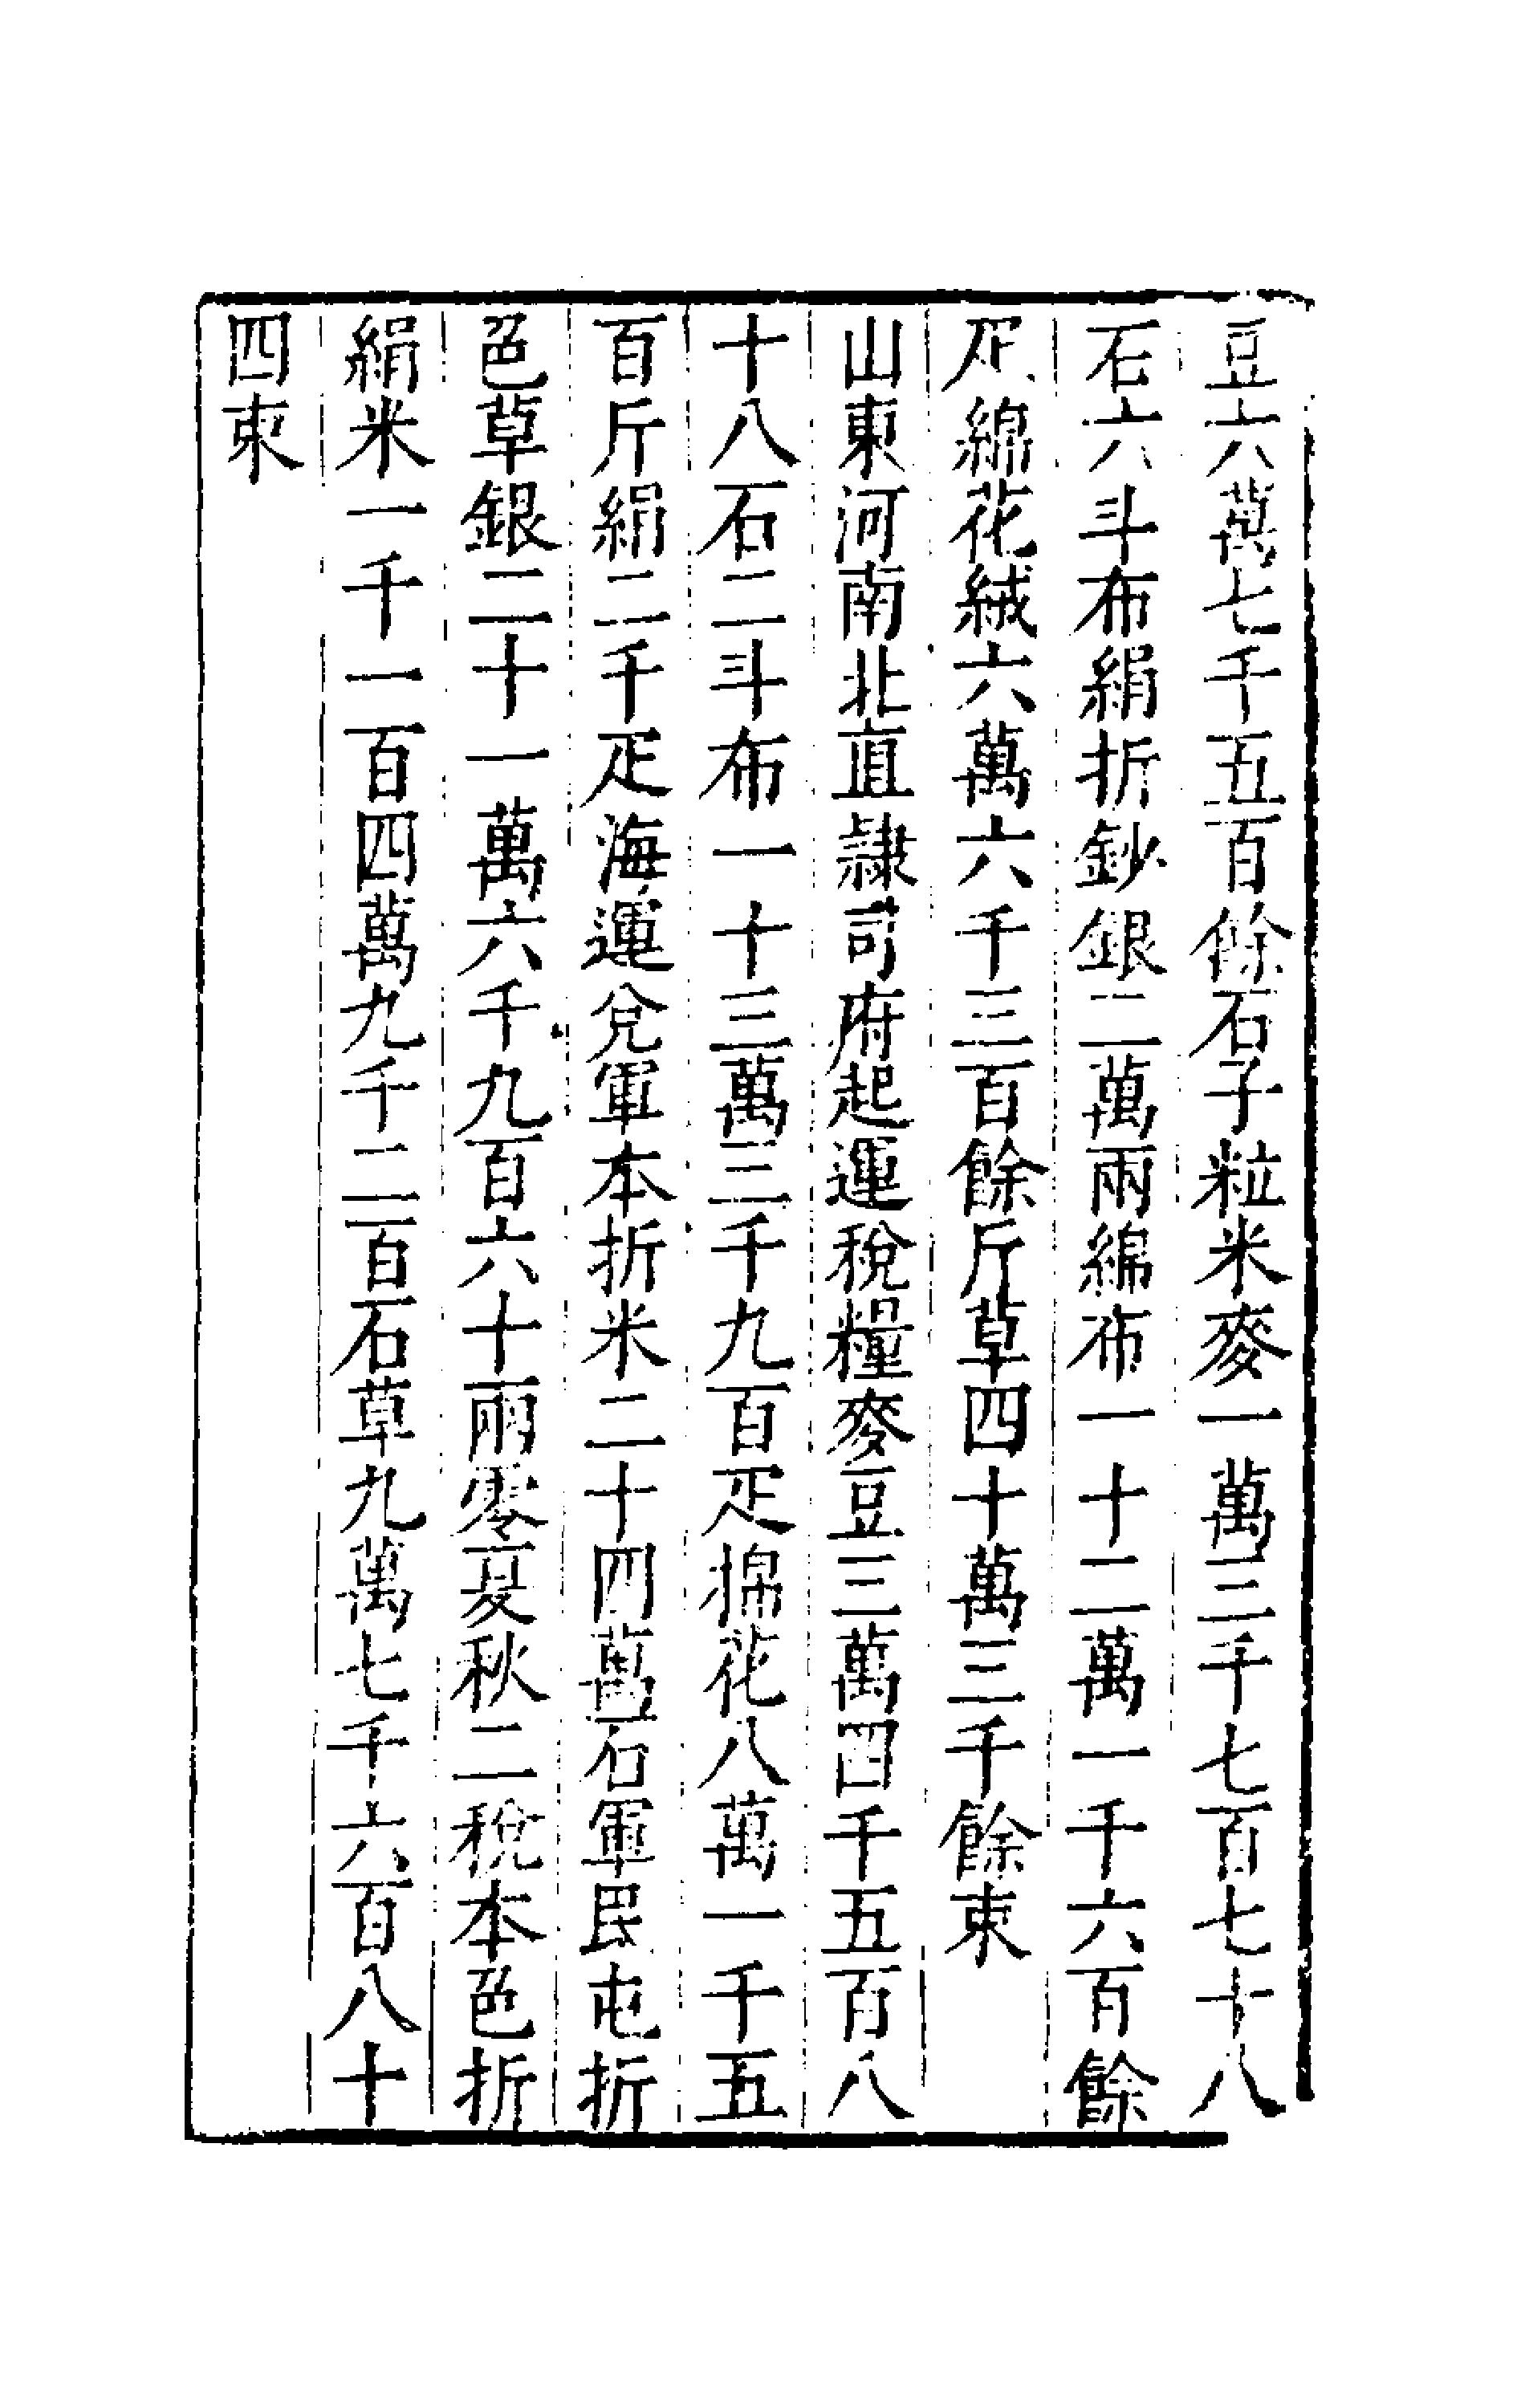 豆六萬七千五百餘石子粒米麥一萬三千七百七十八
石六斗布絹折鈔銀二萬兩綿布一十二萬一千六百餘
疋綿花絨六萬六千三百餘斤草四十萬三千餘束
山東河南北直隷司府起運稅糧麥豆三萬四千五百八
十八石二斗布一十三萬三千九百疋綿花八萬一千五
百斤絹二千疋海運兌軍本折米二十四萬石軍民屯折
色草銀二十一萬六千九百六十兩零夏秋二稅本色折
絹米一千一百四萬九千二百石草九萬七千六百八十
四束